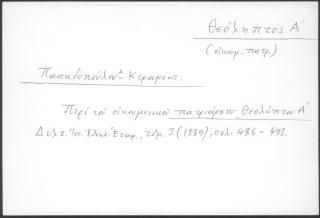 Θεόληπτος Α΄
(οἰκουμ. πατρ.)
Παπαδοπούλου Κεραμέως:
Περί τοῦ οἰκουμενικοῦ πατριάρχου Θεολήπτου Α΄.
Δελτ. Ἱστ. Ἐθνολ. Ἑταιρ., τόμ. 3 (1889), σελ. 486 - 493.